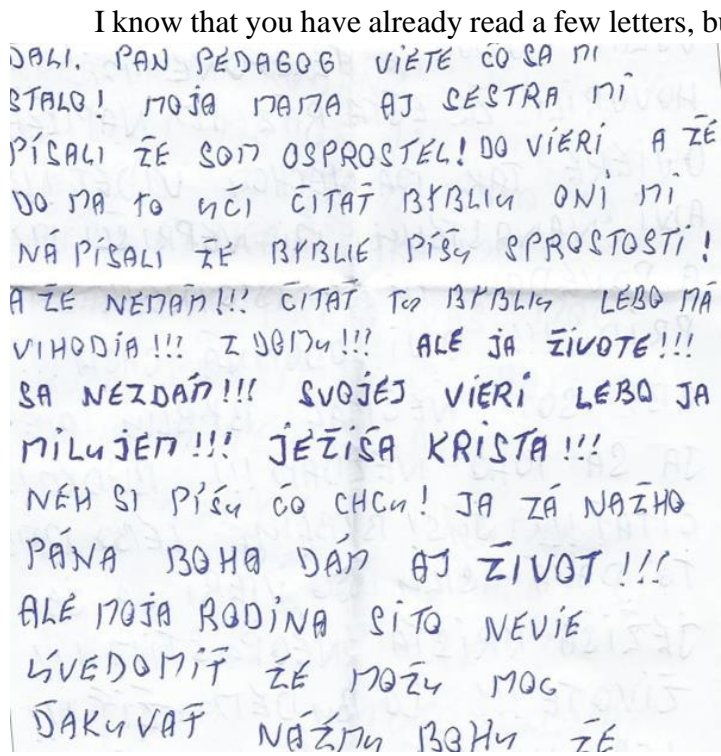 I know that you have already read a few letters, bu
ĎALI. PAN PEDAGOG VIETE ČO SA MI
STALO! MOJA MAMA AJ SESTRA MI
PÍSALI ŽE SOM OSPROSTEL! DO VIERI A ŽE
DO MA TO UČI ČITAŤ BYBLIU ONI MI
NÁ PÍSALI ŽE BYBLIE PÍŠU SPROSTOSTI!
A ŽE NEMÁM!!! ČITAŤ TU BYBLIU LEBO MÁ
VIHODIA!!! Z DOMU!!! ALE JA ŽIVOTE!!!
SA NEZDÁM!!! SVOJEJ VIERI LEBO JA
MILUJEM!!! JEŽIŠA KRISTA!!!
NEH SI PÍŠU ČO CHCU! JA ZÁ NAŽHO
PÁNA BOHA DÁM AJ ŽIVOT!!!
ALE MOJA RODINA SI TO NEVIE
UVEDOMIŤ ŽE MOŽU MOC
ĎAKUVAŤ NÁŽMU BOHU ŽE